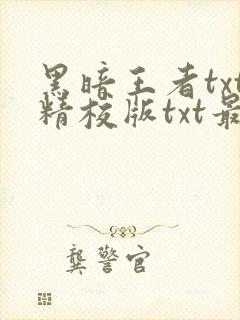 黑暗王者txt
精校版txt最
龚警官